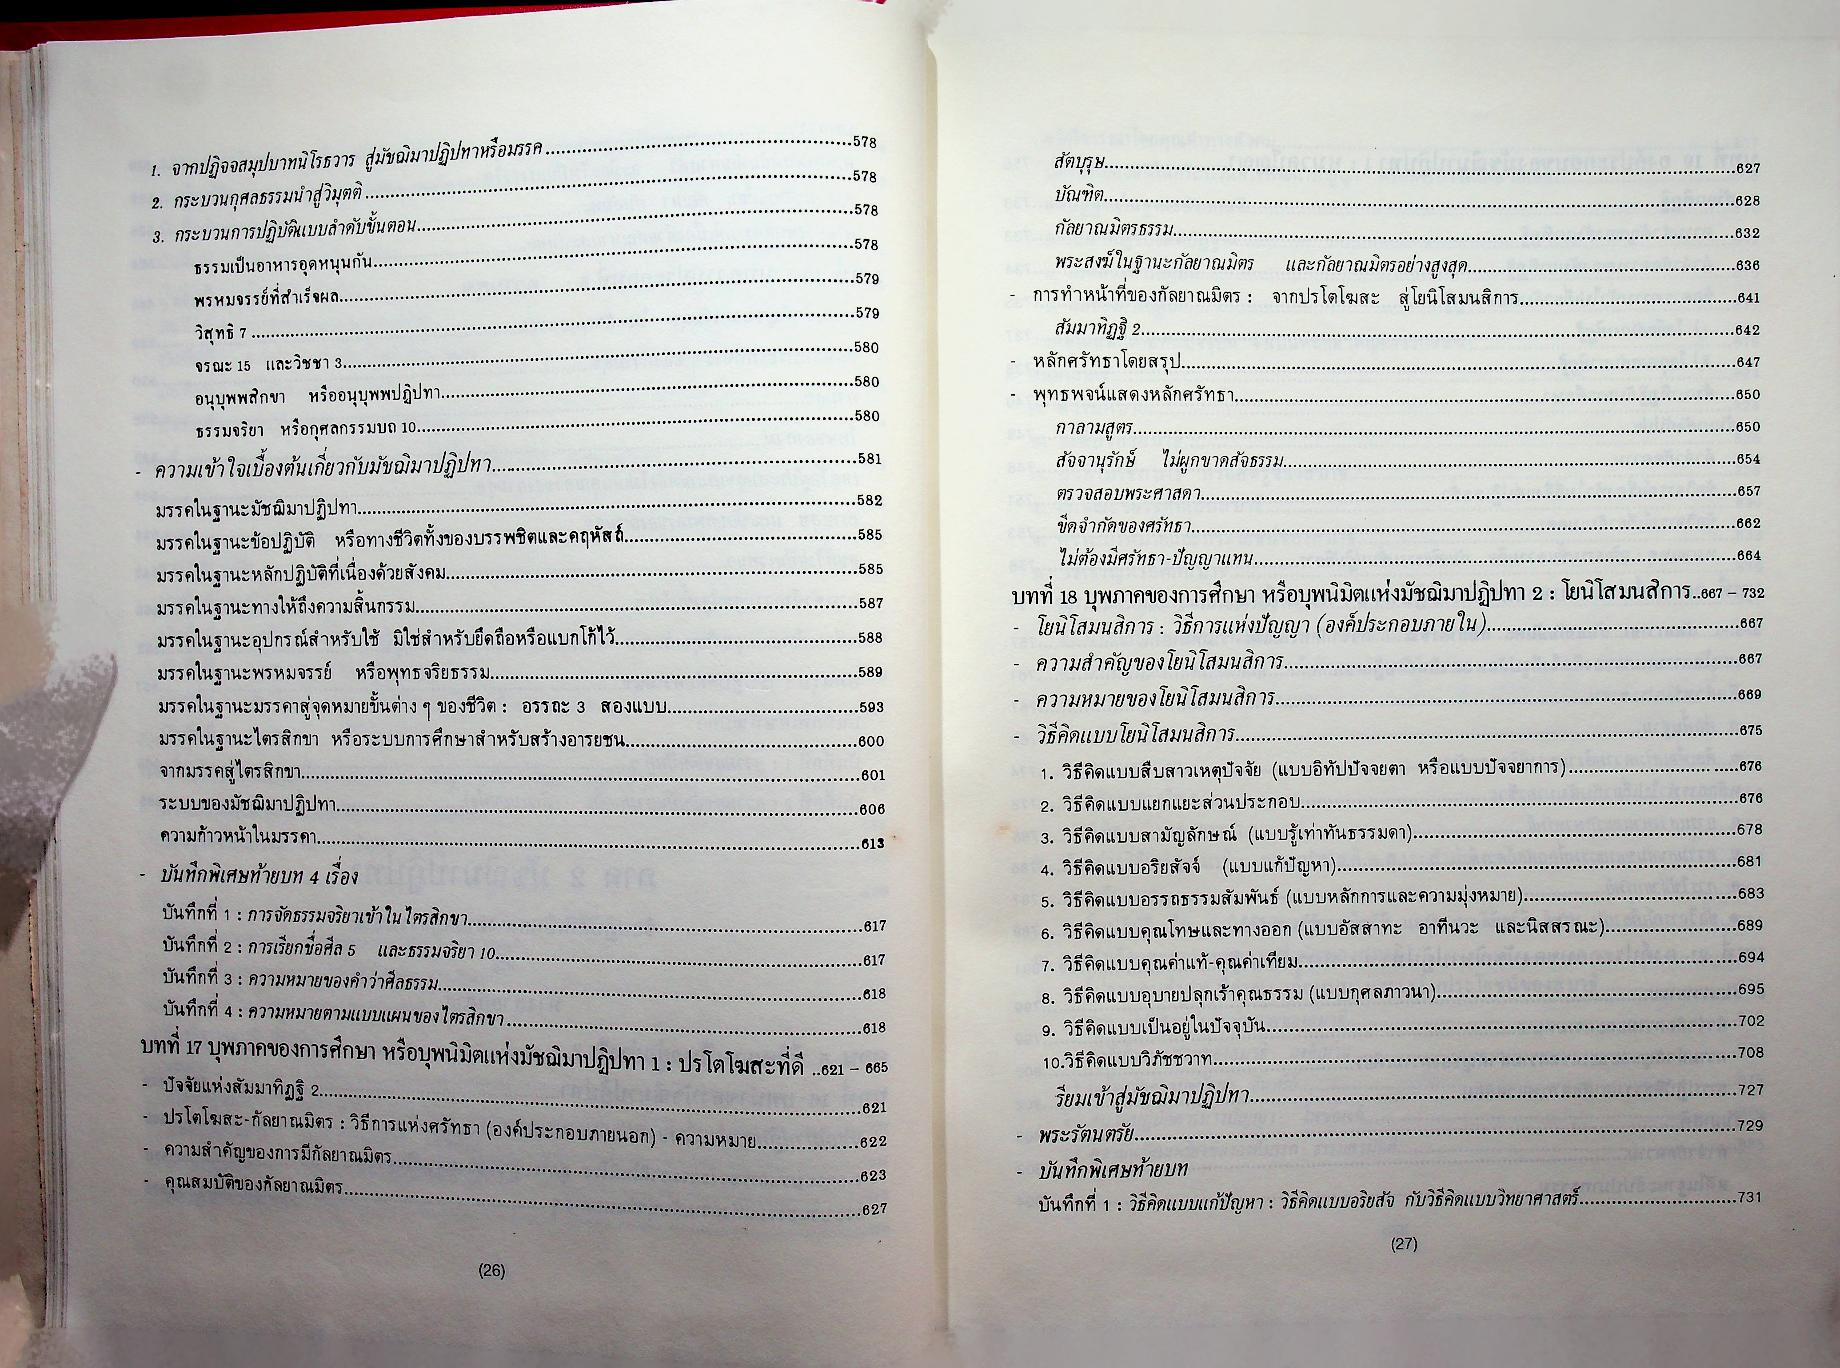 1. จากปฏิจจสมุปบาทนิโรธวาร สู่มัชฌิมาปฏิปทาหรือมรรค..........578
2. กระบวนกุศลธรรมนำสู่วิมุตติ..........578
3. กระบวนการปฏิบัติแบบลำดับขั้นตอน..........578
ธรรมเป็นอาหารอุดหนุนกัน..........578
พรหมจรรย์ที่สำเร็จผล..........579
วิสุทธิ 7..........579
จรณะ 15 และวิชชา 3..........580
อนุบุพพสิกขา หรืออนุบุพพปฏิปทา..........580
ธรรมจริยา หรือกุศลกรรมบถ 10..........580
- ความเข้าใจเบื้องต้นเกี่ยวกับมัชฌิมาปฏิปทา..........581
มรรคในฐานะมัชฌิมาปฏิปทา..........582
มรรคในฐานะข้อปฏิบัติ หรือทางชีวิตทั้งของบรรพชิตและคฤหัสถ์..........585
มรรคในฐานะหลักปฏิบัติที่เนื่องด้วยสังคม..........585
มรรคในฐานะทางให้ถึงความสิ้นกรรม..........587
มรรคในฐานะอุปกรณ์สำหรับใช้ มิใช่สำหรับยึดถือหรือแบกโก้ไว้..........588
มรรคในฐานะพรหมจรรย์ หรือพุทธจริยธรรม..........589
มรรคในฐานะมรรคาสู่จุดหมายขั้นต่าง ๆ ของชีวิต : อรรถะ 3 สองแบบ..........593
มรรคในฐานะไตรสิกขา หรือระบบการศึกษาสำหรับสร้างอารยชน..........600
จากมรรคสู่ไตรสิกขา..........601
ระบบของมัชฌิมาปฏิปทา..........606
ความก้าวหน้าในมรรคา..........613
- บันทึกพิเศษท้ายบท 4 เรื่อง
บันทึกที่ 1 : การจัดธรรมจริยาเข้าในไตรสิกขา..........617
บันทึกที่ 2 : การเรียกชื่อศีล 5 และธรรมจริยา 10..........617
บันทึกที่ 3 : ความหมายของคำว่าศีลธรรม..........618
บันทึกที่ 4 : ความหมายตามแบบแผนของไตรสิกขา..........618
บทที่ 17 บุพภาคของการศึกษา หรือบุพนิมิตแห่งมัชฌิมาปฏิปทา 1 : ปรโตโฆสะที่ดี ..621 – 665
- ปัจจัยแห่งสัมมาทิฏฐิ 2..........621
- ปรโตโฆสะ-กัลยาณมิตร : วิธีการแห่งศรัทธา (องค์ประกอบภายนอก) - ความหมาย..........622
- ความสำคัญของการมีกัลยาณมิตร..........623
- คุณสมบัติของกัลยาณมิตร..........627
(26)
สัตบุรุษ..........627
บัณฑิต..........628
กัลยาณมิตรธรรม..........632
พระสงฆ์ในฐานะกัลยาณมิตร และกัลยาณมิตรอย่างสูงสุด..........636
- การทำหน้าที่ของกัลยาณมิตร : จากปรโตโฆสะ สู่โยนิโสมนสิการ..........641
สัมมาทิฏฐิ 2..........642
- หลักศรัทธาโดยสรุป..........647
- พุทธพจน์แสดงหลักศรัทธา..........650
กาลามสูตร..........650
สัจจานุรักษ์ ไม่ผูกขาดสัจธรรม..........654
ตรวจสอบพระศาสดา..........657
ขีดจำกัดของศรัทธา..........662
ไม่ต้องมีศรัทธา-ปัญญาแทน..........664
บทที่ 18 บุพภาคของการศึกษา หรือบุพนิมิตแห่งมัชฌิมาปฏิปทา 2 : โยนิโสมนสิการ..667 – 732
- โยนิโสมนสิการ : วิธีการแห่งปัญญา (องค์ประกอบภายใน)..........667
- ความสำคัญของโยนิโสมนสิการ..........667
- ความหมายของโยนิโสมนสิการ..........669
- วิธีคิดแบบโยนิโสมนสิการ..........675
1. วิธีคิดแบบสืบสาวเหตุปัจจัย (แบบอิทัปปัจจยตา หรือแบบปัจจยาการ)..........676
2. วิธีคิดแบบแยกแยะส่วนประกอบ..........676
3. วิธีคิดแบบสามัญลักษณ์ (แบบรู้เท่าทันธรรมดา)..........678
4. วิธีคิดแบบอริยสัจจ์ (แบบแก้ปัญหา)..........681
5. วิธีคิดแบบอรรถธรรมสัมพันธ์ (แบบหลักการและความมุ่งหมาย)..........683
6. วิธีคิดแบบคุณโทษและทางออก (แบบอัสสาทะ อาทีนวะ และนิสสรณะ)..........689
7. วิธีคิดแบบคุณค่าแท้-คุณค่าเทียม..........694
8. วิธีคิดแบบอุบายปลุกเร้าคุณธรรม (แบบกุศลภาวนา)..........695
9. วิธีคิดแบบเป็นอยู่ในปัจจุบัน..........702
10.วิธีคิดแบบวิภัชชวาท..........708
เรียมเข้าสู่มัชฌิมาปฏิปทา..........727
- พระรัตนตรัย..........729
- บันทึกพิเศษท้ายบท
บันทึกที่ 1 : วิธีคิดแบบแก้ปัญหา : วิธีคิดแบบอริยสัจ กับวิธีคิดแบบวิทยาศาสตร์..........731
(27)